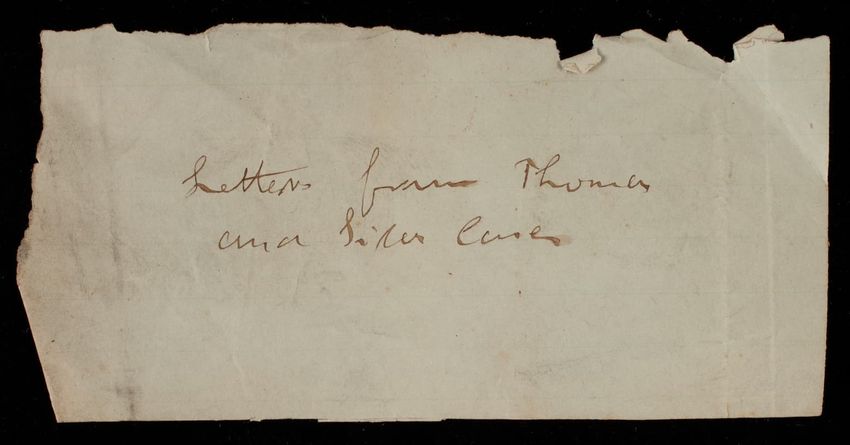 Letters from Thomas
and Silas Casey